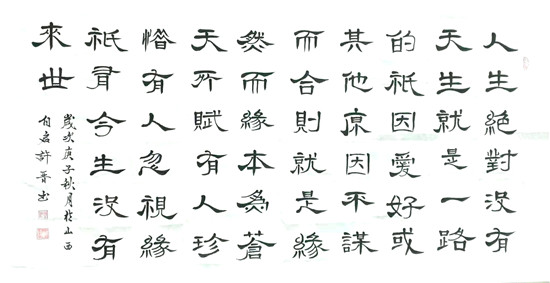 人生絕對没有
天生就是一路
的祇因愛好或
其他原因不謀
而合則就是緣
然而緣本爲蒼
天所賦有人珍
惜有人忽視緣
祇有今生没有
來世
歲次庚子秋月於山西
許晋書